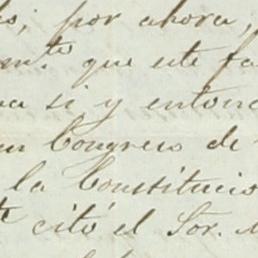 por ahora,
que este fa
si y entonc
Congreso de
la Constitucio
citó el Sor.